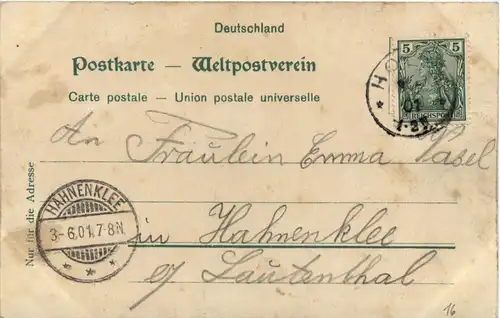 Deutschland
Postkarte — Weltpostverein
Carte postale — Union postale universelle
5 5
REICHSPOST
01
7-8
An Fräulein Emma Vasel
Nur für die Adresse
HAHNENKLEE
3.-6.01.7-8N.
* * *
in Hahnenklee
b/ Lautenthal
16